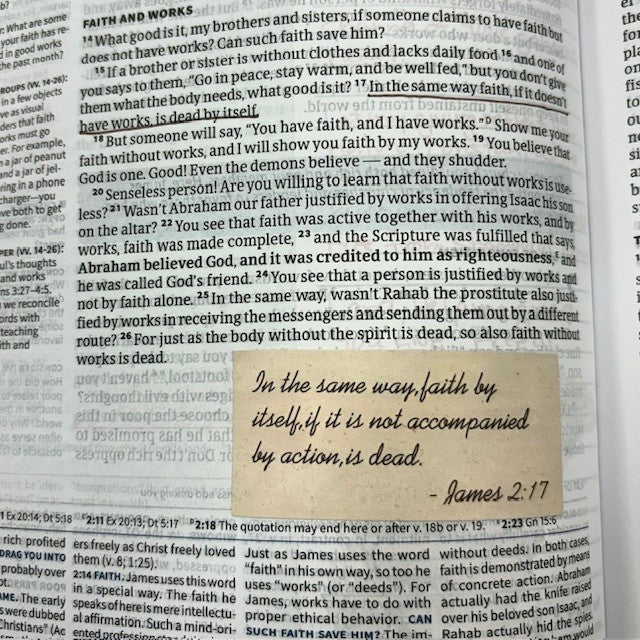 r: What are some
your faith has re-
d in good works
he past month?
ROUPS (VV. 14-26):
in a few objects
ve as visual
ders that faith
orks must go
er. For example,
a jar of peanut
and a jar of jel-
ring in a phone
charger—you
ve both to get
g done.
PER (VV. 14-26):
ul's thoughts
and works
ns 3:27–4:5.
we reconcile
ords with
teaching
ith and
FAITH AND WORKS
14 What good is it, my brothers and sisters, if someone claims to have faith but
does not have works? Can such faith save him?
15 If a brother or sister is without clothes and lacks daily food 16 and one of
you says to them, “Go in peace, stay warm, and be well fed,” but you don't give
them what the body needs, what good is it? 17 In the same way faith, if it doesn't
have works, is dead by itself.
18 But someone will say, “You have faith, and I have works.”D Show me your
faith without works, and I will show you faith by my works. 19 You believe that
God is one. Good! Even the demons believe — and they shudder.
20 Senseless person! Are you willing to learn that faith without works is use-
less? 21 Wasn't Abraham our father justified by works in offering Isaac his son
on the altar? 22 You see that faith was active together with his works, and by
works, faith was made complete, 23 and the Scripture was fulfilled that says,
Abraham believed God, and it was credited to him as righteousness,E and
he was called God's friend. 24 You see that a person is justified by works and
not by faith alone. 25 In the same way, wasn't Rahab the prostitute also justi-
fied by works in receiving the messengers and sending them out by a different
route? 26 For just as the body without the spirit is dead, so also faith without
works is dead.
In the same way, faith by
itself, if it is not accompanied
by action, is dead.
- James 2:17
1 Ex 20:14; Dt 5:18 C 2:11 Ex 20:13; Dt 5:17 D 2:18 The quotation may end here or after v. 18b or v. 19. E 2:23 Gn 15:6
rich profited
DRAG YOU INTO
probably over
AME. The early
s were dubbed
Christians” (Ac
ers freely as Christ freely loved
them (v. 8; 1:25).
2:14 FAITH. James uses this word
in a special way. The faith he
speaks of here is mere intellectu-
al affirmation. Such a mind-ori-
ented profession
Just as James uses the word
“faith” in his own way, so too he
uses “works” (or “deeds”). For
James, works have to do with
proper ethical behavior. CAN
SUCH FAITH SAVE HIM? The im-
without deeds. In both cases,
faith is demonstrated by means
of concrete action. Abraham
actually had the knife raised
over his beloved son Isaac, and
Rahab actually hid the spies.